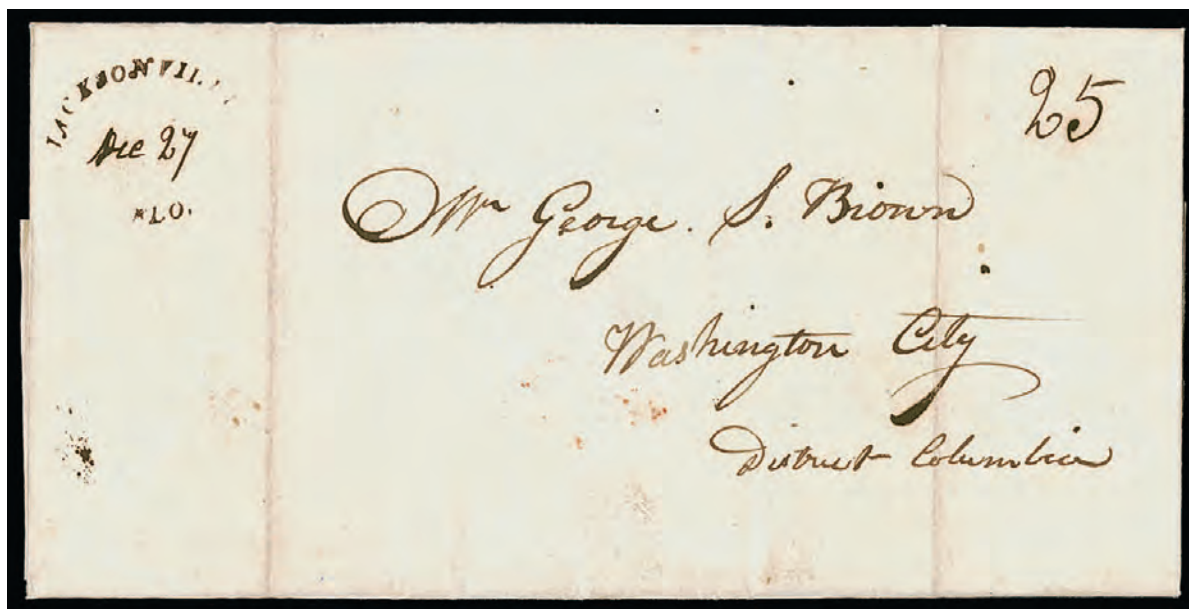 JACKSONVILLE
Dec 27
FLO.
25
Mr George. S. Brown
Washington City
District Columbia